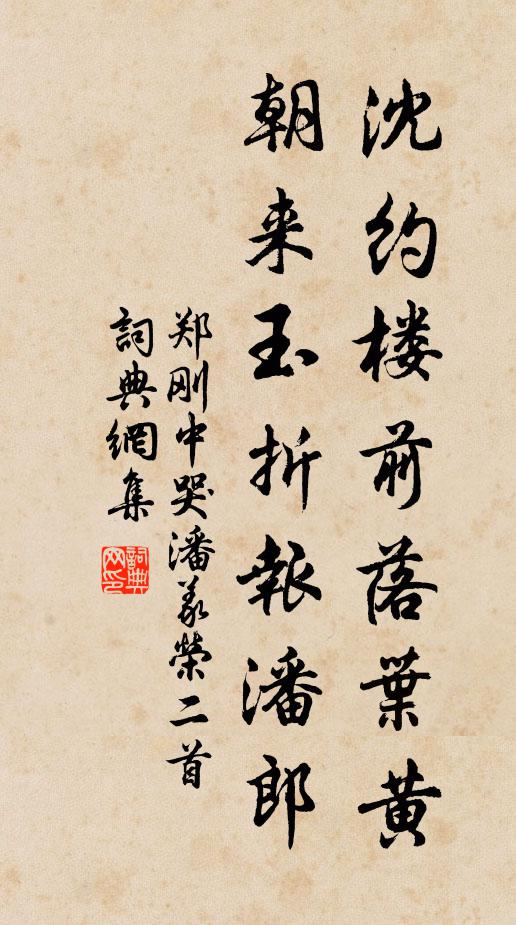 沈约楼前落葉黄
朝来玉折報潘郎
郑刚中哭潘義榮二首
詞典網集
詞典网印